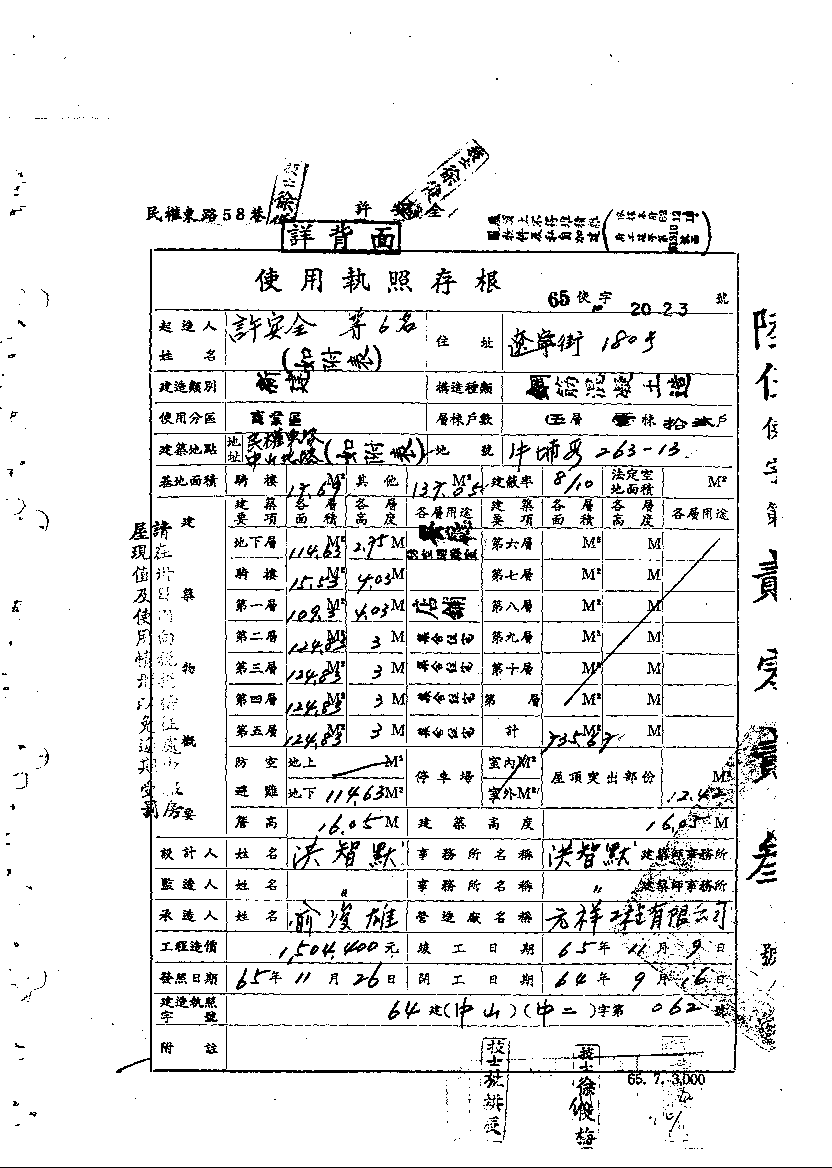 民權東路58巷
許安全
詳背面
使用執照存根
65使字 2023 號
起造人姓名 許安全 等6名 (如附表) 住址 遼寧街 180号
建造類別 新建 構造種類 鋼筋混凝土造
使用分區 商業區 層棟戶數 伍層 壹棟 拾貳戶
建築地點 地址 民權東路 中山北路 (如附表) 地號 牛埔段 263-13
基地面積 騎樓 17.69 M² 其他 137.05 M² 建蔽率 8/10 法定空地面積 M²
建築物概要
建築要項 各層面積 各層高度 各層用途 建築要項 各層面積 各層高度 各層用途
地下層 114.63 M² 2.75 M 第六層 M² M
騎樓 15.53 M² 4.03 M 第七層 M² M
第一層 109.3 M² 4.03 M 店鋪 第八層 M² M
第二層 124.83 M² 3 M 集合住宅 第九層 M² M
第三層 124.83 M² 3 M 集合住宅 第十層 M² M
第四層 124.83 M² 3 M 集合住宅 第 層 M² M
第五層 124.83 M² 3 M 集合住宅 計 M² M
防空避難 地上 M² 停車場 室內M² 屋頂突出部份 12.42 M²
地下 114.63 M² 室外M²
簷高 16.05 M 建築高度 16.05 M
設計人 姓名 洪智默 事務所名稱 洪智默 建築師事務所
監造人 姓名 〃 事務所名稱 〃 建築師事務所
承造人 姓名 俞浚雄 營造廠名稱 元祥工程有限公司
工程造價 1,504,400元 竣工日期 65年11月9日
發照日期 65年11月26日 開工日期 64年9月16日
建造執照字號 64建(中山)(中二)字第 062 號
附註
65.7.3,000
陸伍使字第貳零貳叁號